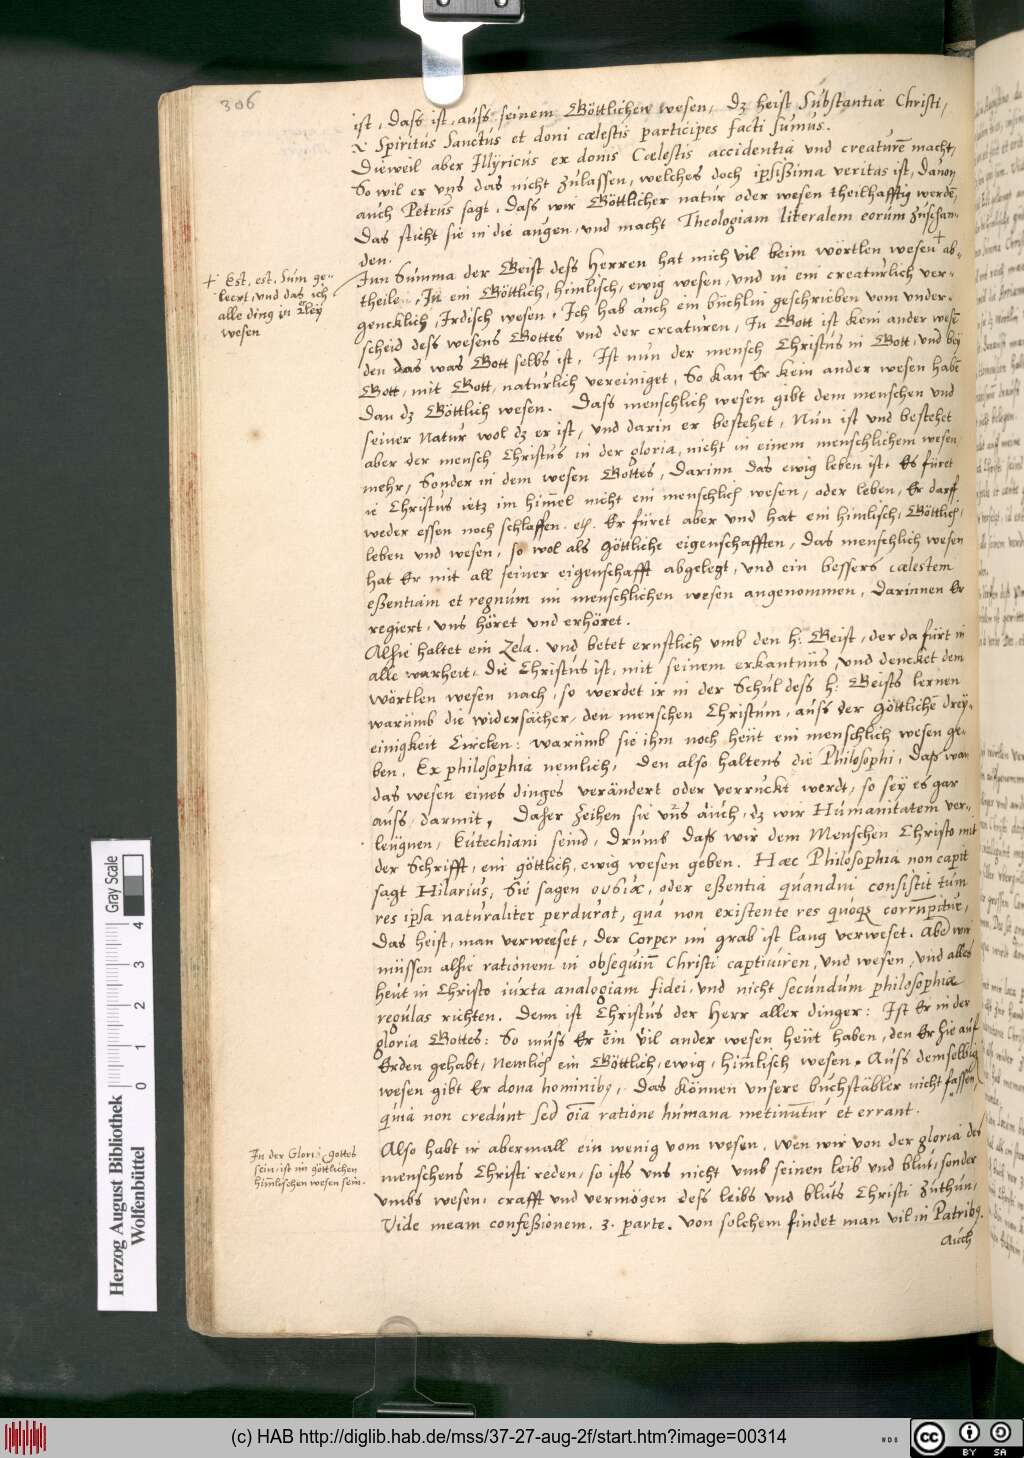 306
ist, dass ist, auss seinem Göttlichen wesen, dz heist Substantiæ Christi,
Spiritus Sanctus et doni cœlestis participes facti sumus.
Dieweil aber Illyricus ex donis Cœlestis accidentia und creaturē macht,
So wil er uns das nicht zulassen, welches doch ipsissima veritas ist, davon
auch Petrus sagt, dass wir Göttlicher natur oder wesen theilhafftig werdē,
Das sticht sie in die augen, und macht Theologiam literalem eorum zuschan-
den.
+ Est, est, Sum ge-
leert, und das ich
alle ding in zwey
wesen
Inn Summa der Geist dess Herren hat mich vil beim wörtlen wesen + ab-
theile, In ein Göttlich, himlisch, ewig wesen, und in ein creaturlich ver-
gencklich, Irdisch wesen. Ich hab auch ein büchlin geschrieben vom under-
scheid dess wesens Gottes und der creaturen, In Gott ist kein ander wesē
den das was Gott selbs ist. Ist nun der mensch Christus in Gott, und bey
Gott, mit Gott, naturlich vereiniget, So kan Er kein ander wesen habē
dan dz Göttlich wesen. Dass menschlich wesen gibt dem menschen und
seiner Natur wol dz er ist, und darin er bestehet, Nun ist und bestehet
aber der mensch Christus in der gloria, nicht in einem menschlichem wesen
mehr, Sonder in dem wesen Gottes, Darinn das ewig leben ist. Es füret
ie Christus ietz im himel nicht ein menschlich wesen, oder leben, Er darff
weder essen noch schlaffen. etc. Er füret aber und hat ein himlisch, Göttlich,
leben und wesen, so wol als göttliche eigenschafften, das menschlich wesen
hat Er mit all seiner eigenschafft abgelegt, und ein bessers cælestem
essentiam et regnum im menschlichen wesen angenommen, Darinnen Er
regiert, uns höret und erhöret.
Alhie haltet ein Zela. und betet ernstlich umb den h: Geist, der da fürt in
alle warheit, die Christus ist, mit seinem erkantnüs, und dencket dem
wörtlen wesen nach, so werdet ir in der Schul dess h: Geists lernen
warumb die widersächer, den menschen Christum, auss der göttlichē drey-
einigkeit Circlen: warumb sie ihm noch heut ein menschlich wesen ge-
ben, Ex philosophia nemlich, Den also haltens die Philosophi, Dass wan
das wesen eines dinges verändert oder verruckt werdt, so sey es gar
auss, darmit, Daher zeihen sie uns auch, dz wir Humanitatem ver-
leugnen, Eutechiani seind, Drumb dass wir dem Menschen Christo mit
der Schrifft, ein göttlich, ewig wesen geben. Hæc Philosophia non capit
sagt Hilarius, Sie sagen ουσιæ, oder essentia quandui consistit tum
res ipsa naturaliter perdurat, qua non existente res quoqȝ corrumpitur,
Das heist, man verweeset, der Corper im grab ist lang verweset. Aber wir
müssen alhie rationem in obsequiū Christi captiviren, und wesen, und alles
heut in Christo iuxta analogiam fidei, und nicht secundum philosophiæ
regulas richten. Denn ist Christus der Herr aller dinger: Ist Er in der
gloria Gottes: So muss Er ein vil ander wesen heut haben, den Er hie auf
Erden gehabt, Nemlich ein Göttlich, ewig, himlisch wesen. Auss demselbig
wesen gibt Er dona hominibq, Das können unsere buchstäbler nicht fassen,
quia non credunt sed oīa ratione humana metiuntur et errant.
In der Glori: gottes
sein, ist im göttlichen
himlischen wesen sein.
Also habt ir abermall ein wenig vom wesen, wen wir von der gloria des
menschens Christi reden, so ists uns nicht umb seinen leib und blut, sonder
umbs wesen, crafft und vermögen dess leibs und bluts Christi zuthun,
Vide meam confessionem. 3. parte. von solchem findet man vil in Patribq.
Auch
Gray Scale
0 1 2 3 4
Herzog August Bibliothek
Wolfenbüttel
(c) HAB http://diglib.hab.de/mss/37-27-aug-2f/start.htm?image=00314
WDB
cc BY SA